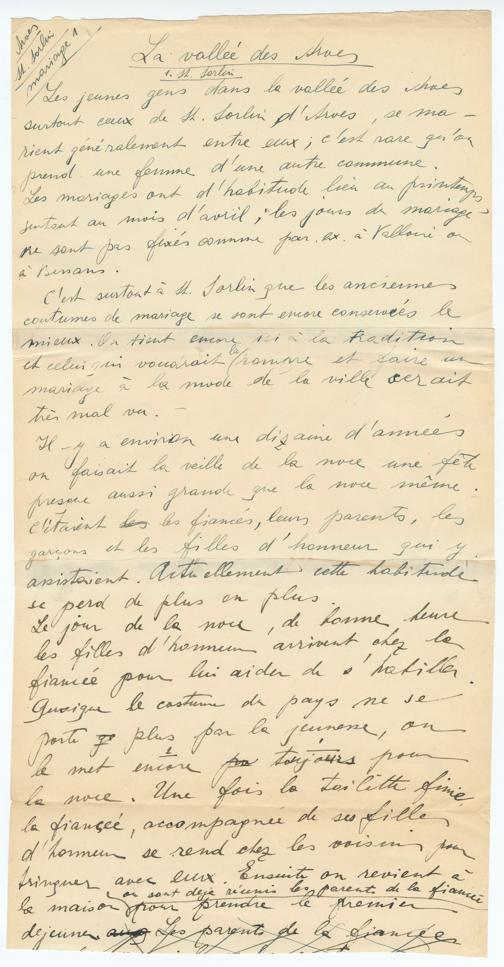 Arves
St. Sorlin
mariage 1
La vallée des Arves
1. St. Sorlin
Les jeunes gens dans la vallée des Arves
surtout ceux de St. Sorlin d'Arves, se ma-
rient généralement entre eux; c'est rare qu'on
prend une femme d'une autre commune.
Les mariages ont d'habitude lieu au printemps
surtout au mois d'avril; les jours du mariage
ne sont pas fixés comme par. ex. à Valloire ou
à Bessans.
C'est surtout à St. Sorlin que les anciennes
coutumes de mariage se sont encore conservées le
mieux. On tient encore ici à la tradition
et celui qui voudrait la romvre et faire un
mariage à la mode de la ville serait
très mal vu. -
Il-y a environ une dizaine d'années
on faisait la veille de la noce une fête
presque aussi grande que la noce même.
C'étaient les les fiancés, leurs parents, les
garçons et les filles d'honneur qui y
assistaient. Actuellement cette habitude
se perd de plus en plus.
Le jour de la noce, de bonne heure
les filles d'honneur arrivent chez la
fiancée pour lui aider de s'habiller.
Quoique le costume du pays ne se
porte plus par la jeunesse, on
le met encore toujours pour
la noce. Une fois la toilette finie
la fiancée, accompagnée de ses filles
d'honneur se rend chez les voisins pour
tringuer avec eux. Ensuite on revient à
où sont déjà réunis les parents de la fiancée
la maison pour prendre le premier
déjeuner Les parents de la fiancée